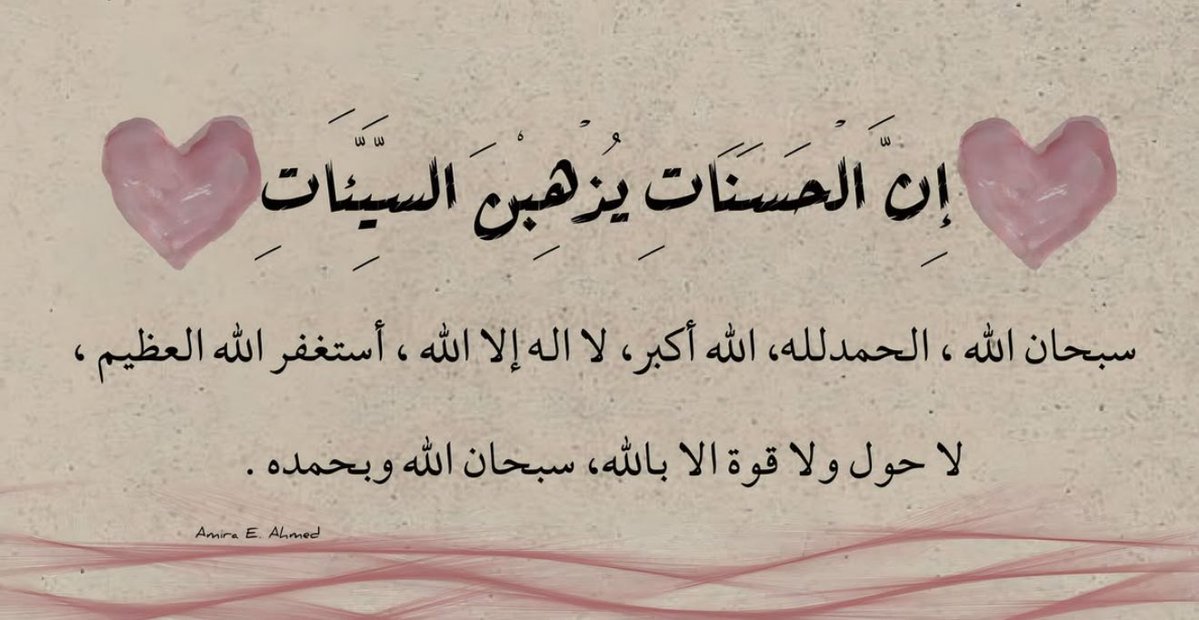 إِنَّ الْحَسَنَاتِ يُذْهِبْنَ السَّيِّئَاتِ
سبحان الله ، الحمدلله، الله أكبر، لا اله إلا الله ، أستغفر الله العظيم ،
لا حول ولا قوة الا بالله، سبحان الله وبحمده .
Amira E. Ahmed